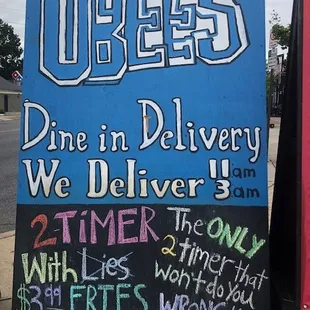 UBEES
Dine in Delivery
We Deliver 11am
3am
2-TiMER
With Lies
$3.99 FRIES
The ONLY
2 timer that
won't do you
WRONG